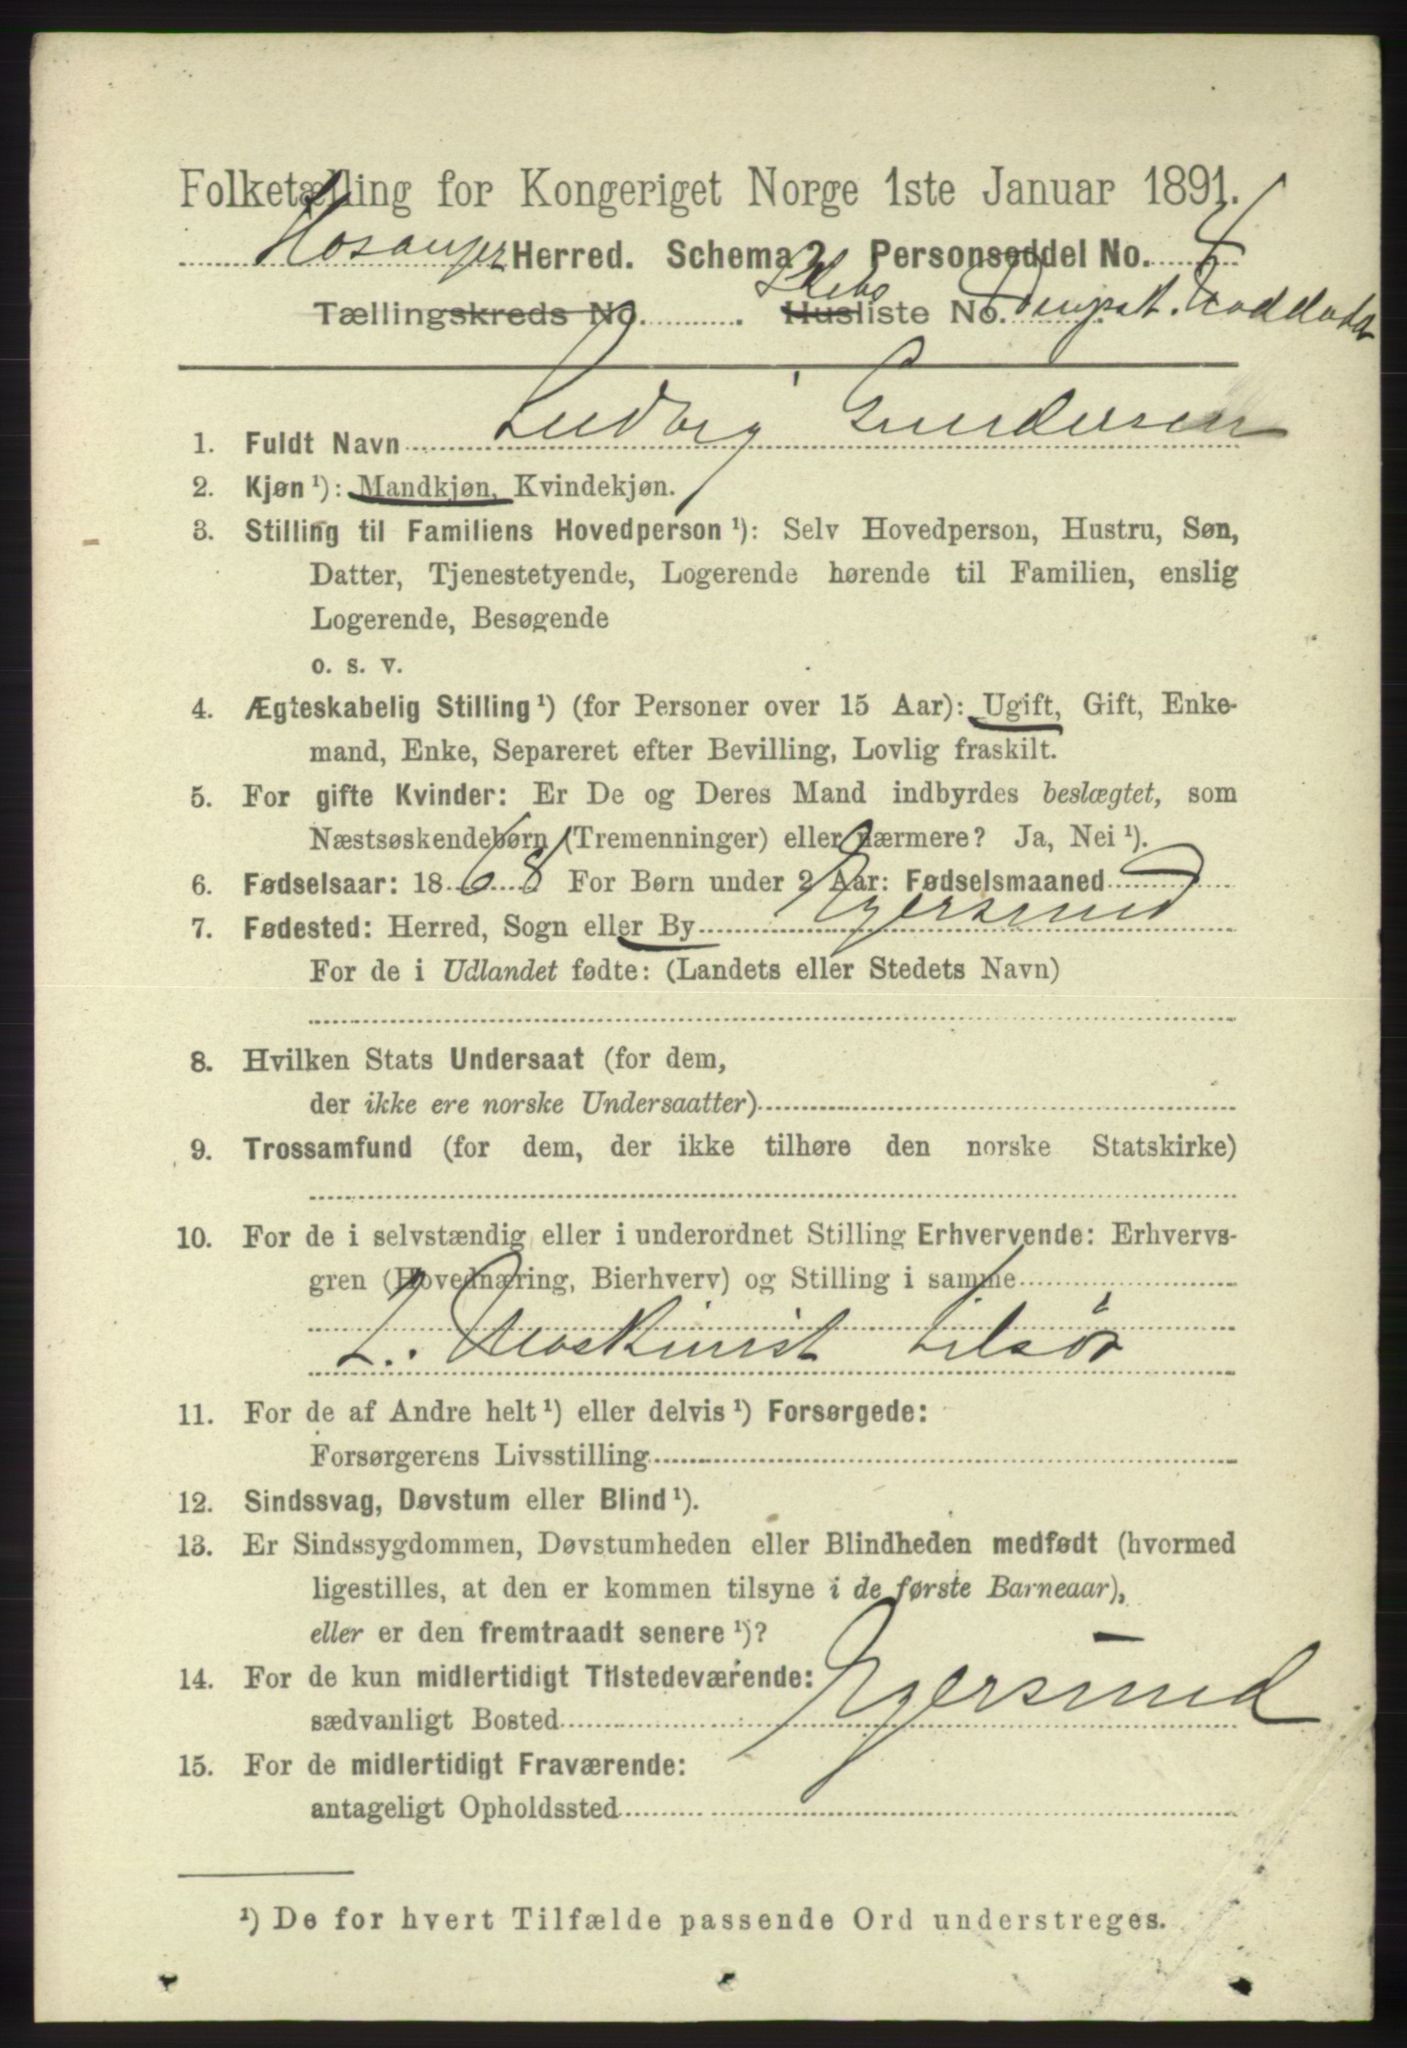 Folketælling for Kongeriget Norge 1ste Januar 1891.
Hosanger Herred. Schema 2. Personseddel No. 4
Tællingskreds No. . Skibs Husliste No. Dampsk.
1. Fuldt Navn Ludvig Gundersen
2. Kjøn ¹): Mandkjøn, Kvindekjøn.
3. Stilling til Familiens Hovedperson ¹): Selv Hovedperson, Hustru, Søn,
Datter, Tjenestetyende, Logerende hørende til Familien, enslig
Logerende, Besøgende
o. s. v.
4. Ægteskabelig Stilling ¹) (for Personer over 15 Aar): Ugift, Gift, Enke-
mand, Enke, Separeret efter Bevilling, Lovlig fraskilt.
5. For gifte Kvinder: Er De og Deres Mand indbyrdes beslægtet, som
Næstsøskendebørn (Tremenninger) eller nærmere? Ja, Nei ¹).
6. Fødselsaar: 1868 For Børn under 2 Aar: Fødselsmaaned
7. Fødested: Herred, Sogn eller By Egersund
For de i Udlandet fødte: (Landets eller Stedets Navn)
8. Hvilken Stats Undersaat (for dem,
der ikke ere norske Undersaatter)
9. Trossamfund (for dem, der ikke tilhøre den norske Statskirke)
10. For de i selvstændig eller i underordnet Stilling Erhvervende: Erhvervs-
gren (Hovednæring, Bierhverv) og Stilling i samme
2. Maskinist tilsøs
11. For de af Andre helt ¹) eller delvis ¹) Forsørgede:
Forsørgerens Livsstilling
12. Sindssvag, Døvstum eller Blind ¹).
13. Er Sindssygdommen, Døvstumheden eller Blindheden medfødt (hvormed
ligestilles, at den er kommen tilsyne i de første Barneaar),
eller er den fremtraadt senere ¹)?
14. For de kun midlertidigt Tilstedeværende:
sædvanligt Bosted Egersund
15. For de midlertidigt Fraværende:
antageligt Opholdssted
¹) De for hvert Tilfælde passende Ord understreges.